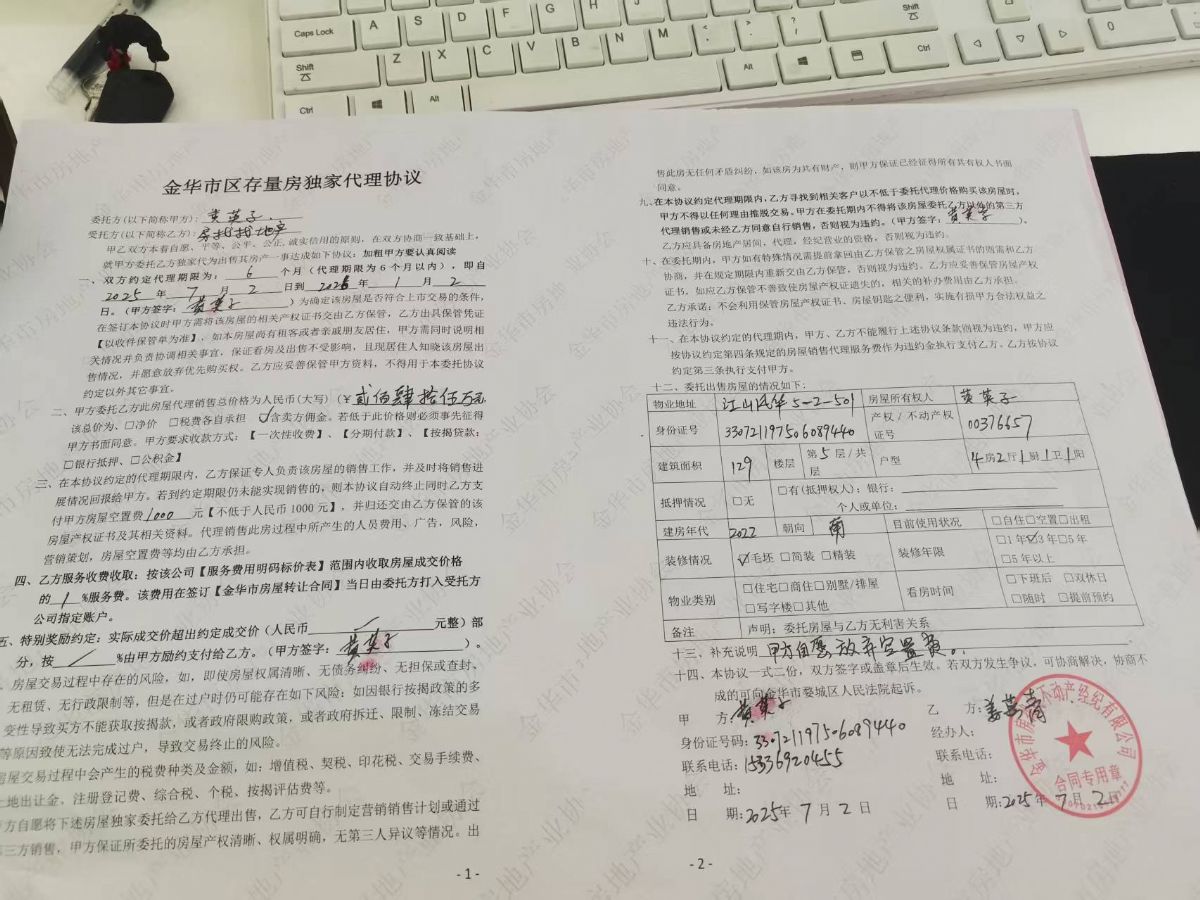 金华市区存量房独家代理协议
委托方(以下简称甲方)：黄英子
受托方(以下简称乙方)：房找找地产
甲乙双方本着自愿、平等、公平、公正、诚实信用的原则，在双方协商一致基础上，
就甲方委托乙方独家代为出售其房产一事达成如下协议：加粗甲方要认真阅读
一、双方约定代理期限为：6个月（代理期限为6个月以内），即自
2025年7月2日到2026年1月2
日。（甲方签字：黄英子）为确定该房屋是否符合上市交易的条件，
在签订本协议时甲方需将该房屋的相关产权证书交由乙方保管，乙方出具保管凭证
【以收件保管单为准】，如本房屋尚有租客或者亲戚朋友居住，甲方需同时说明相
关情况并负责协调相关事宜，保证看房及出售不受影响，且现居住人知晓该房屋出
售情况，并愿意放弃优先购买权。乙方应妥善保管甲方资料，不得用于本委托协议
约定以外其它事宜。
二、甲方委托乙方此房屋代理销售总价格为人民币(大写)（¥贰佰肆拾伍万元
该总价为、□净价 □税费各自承担 ☑含卖方佣金。若低于此价格则必须事先征得
甲方书面同意。甲方要求收款方式：【一次性收费】、【分期付款】、【按揭贷款：
□银行抵押、□公积金】
三、在本协议约定的代理期限内，乙方保证专人负责该房屋的销售工作，并及时将销售进
展情况回报给甲方。若到约定期限仍未能实现销售的，则本协议自动终止同时乙方支
付甲方房屋空置费1000元【不低于人民币1000元】，并归还交由乙方保管的该
房屋产权证书及其相关资料。代理销售此房过程中所产生的人员费用、广告，风险，
营销策划，房屋空置费等均由乙方承担。
四、乙方服务收费收取：按该公司【服务费用明码标价表】范围内收取房屋成交价格
的1%服务费。该费用在签订【金华市房屋转让合同】当日由委托方打入受托方
公司指定账户。
五、特别奖励约定：实际成交价超出约定成交价（人民币／元整）部
分，按／%由甲方励约支付给乙方。（甲方签字：黄英子）。
房屋交易过程中存在的风险，如，即使房屋权属清晰、无债务纠纷、无担保或查封、
无租赁、无行政限制等，但是在过户时仍可能存在如下风险：如因银行按揭政策的多
变性导致买方不能获取按揭款，或者政府限购政策，或者政府拆迁、限制、冻结交易
等原因致使无法完成过户，导致交易终止的风险。
房屋交易过程中会产生的税费种类及金额，如：增值税、契税、印花税、交易手续费、
土地出让金、注册登记费、综合税、个税、按揭评估费等。
方自愿将下述房屋独家委托给乙方代理出售，乙方可自行制定营销销售计划或通过
三方销售，甲方保证所委托的房屋产权清晰、权属明确，无第三人异议等情况。出
-1-
售此房无任何矛盾纠纷，如该房为共有财产，则甲方保证已经征得所有共有权人书面
同意。
九、在本协议约定代理期限内，乙方寻找到相关客户以不低于委托代理价格购买该房屋时，
甲方不得以任何理由推脱交易。甲方在委托期内不得将该房屋委托乙方以外的第三方
代理销售或未经乙方同意自行销售，否则视为违约。（甲方签字：黄英子）。
乙方应具备房地产居间，代理，经纪营业的资格，否则视为违约。
十、在委托期内，甲方如有特殊情况需提前拿回由乙方保管之房屋权属证书的则需和乙方
协商，并在规定期限内重新交由乙方保管，否则视为违约。乙方应妥善保管房屋产权
证书，如应乙方保管不善致使房屋产权证遗失的，相关的补办费用由乙方承担。
乙方承诺：不会利用保管房屋产权证书、房屋钥匙之便利，实施有损甲方合法权益之
违法行为。
十一、在本协议约定的代理期内，甲方、乙方不能履行上述协议条款则视为违约，甲方应
按协议约定第四条规定的房屋销售代理服务费作为违约金执行支付乙方。乙方按协议
约定第三条执行支付甲方。
十二、委托出售房屋的情况如下：
物业地址 江山风华5-2-501 房屋所有权人 黄英子
身份证号 330721197506089440 产权/不动产权证号 00376657
建筑面积 129 楼层 第5层/共 层 户型 4房2厅1厨1卫1阳
抵押情况 □无 □有(抵押权人)：银行：
个人或单位：
建房年代 2022 朝向 南 目前使用状况 □自住□空置□出租
装修情况 ☑毛坯 □简装 □精装 装修年限 □1年☑3年□5年
□5年以上
物业类别 □住宅□商住□别墅/排屋 看房时间 □下班后 □双休日
□写字楼□其他 □随时 □提前预约
备注 声明：委托房屋与乙方无利害关系
十三、补充说明 甲方自愿放弃空置费。
十四、本协议一式二份，双方签字或盖章后生效。若双方发生争议，可协商解决，协商不
成的可向金华市婺城区人民法院起诉。
甲 方：黄英子 乙 方：
身份证号码：330721197506089440 经办人：
联系电话：15336920455 联系电话：
地 址： 地 址：
日 期：2025年7月2日 日 期：2025年7月2日
合同专用章
-2-